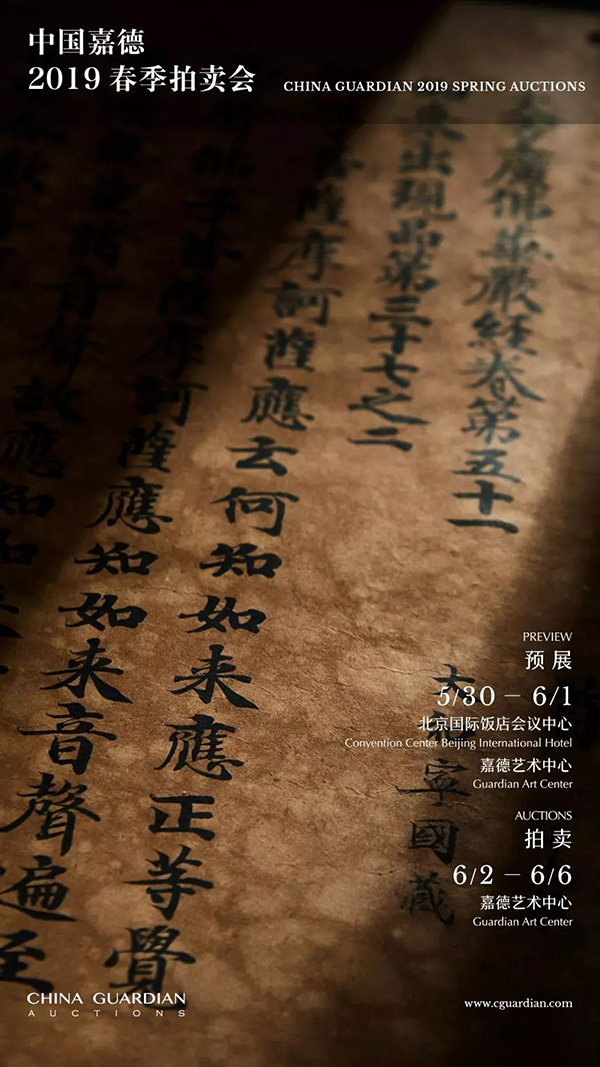 中国嘉德
2019 春季拍卖会
CHINA GUARDIAN 2019 SPRING AUCTIONS
方廣佛華嚴經卷第五十一
来出現品第三十七之二
菩薩摩訶薩應云何知如来應正等覺
子菩薩摩訶薩應知如来音聲遍至
故應知如
大和寧國藏
PREVIEW
预展
5/30 — 6/1
北京国际饭店会议中心
Convention Center Beijing International Hotel
嘉德艺术中心
Guardian Art Center
AUCTIONS
拍卖
6/2 — 6/6
嘉德艺术中心
Guardian Art Center
CHINA GUARDIAN
AUCTIONS
www.cguardian.com